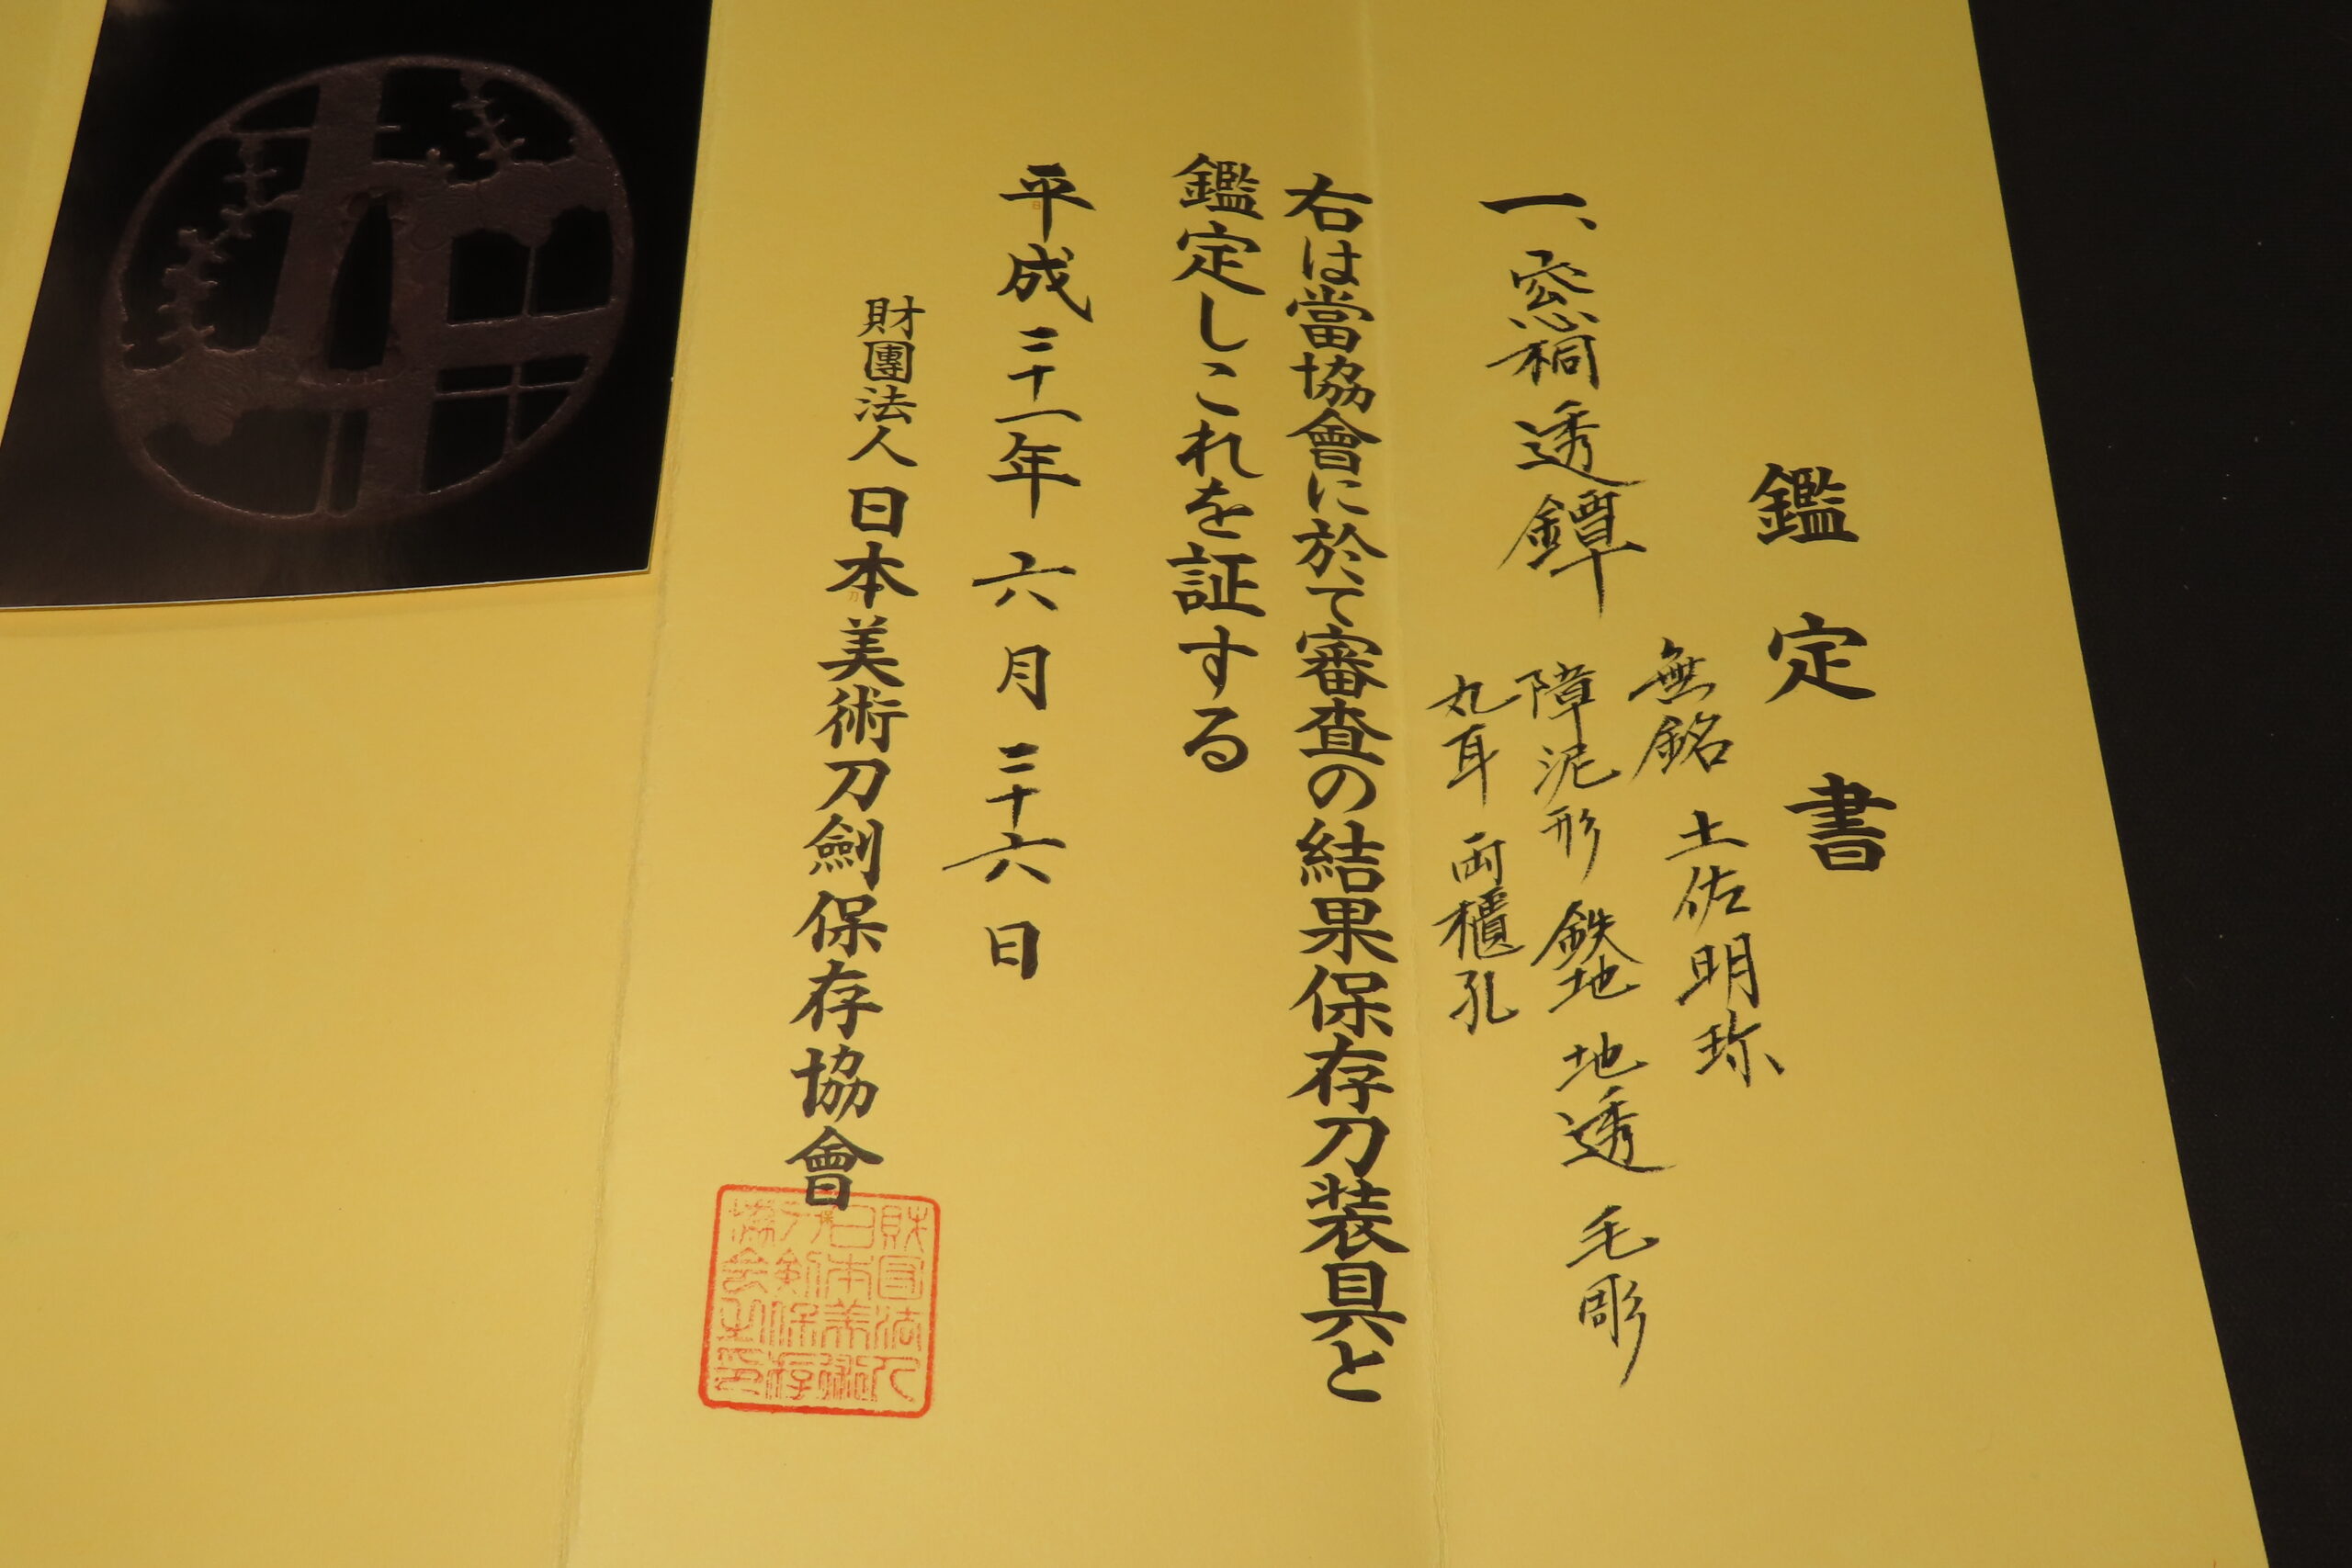 鑑定書
一、窓桐透鐔
無銘 土佐明珎
障泥形 鉄地 地透 毛彫
丸耳 両櫃孔
右は當協會に於て審査の結果保存刀装具と
鑑定しこれを証する
平成二十一年 六月 二十六日
財團法人 日本美術刀劍保存協會
財団法人
日本美術
刀剣保存
協会之印